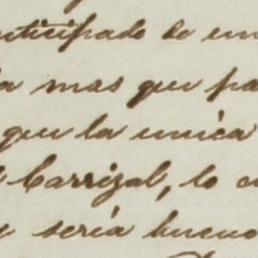 anticipado de un
mas que pa
que la unica
Carrizal, lo
seria bueno